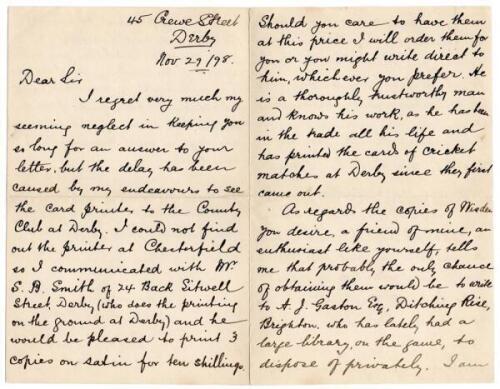 45 Crewe Street
Derby
Nov 29/98.
Dear Sir
I regret very much my
seeming neglect in keeping you
so long for an answer to your
letter, but the delay has been
caused by my endeavours to see
the card printer to the County
Club at Derby. I could not find
out the printer at Chesterfield
so I communicated with Mr
S. B. Smith of 24 Back Sitwell
Street, Derby (who does the printing
on the ground at Derby) and he
would be pleased to print 3
copies on satin for ten shillings.
Should you care to have them
at this price I will order them for
you or you might write direct to
him, which ever you prefer. He
is a thoroughly trustworthy man
and knows his work, as he has been
in the trade all his life and
has printed the cards of cricket
matches at Derby since they first
came out.
As regards the copies of Wisden
you desire, a friend of mine, an
enthusiast like yourself, tells
me that probably the only chance
of obtaining them would be to write
to A. J. Gaston Esq, Ditchling Rise,
Brighton. who has lately had a
large library, on the game, to
dispose of privately. I am